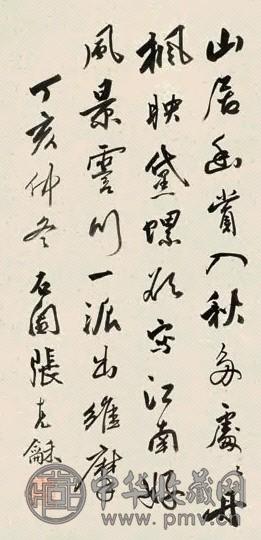 山居幽賞入秋多處々丹
楓映黛螺欲寫江南好
風景霅川一派出維摩
丁亥仲冬石園張克龢
中华收藏网
www.pmv.cn